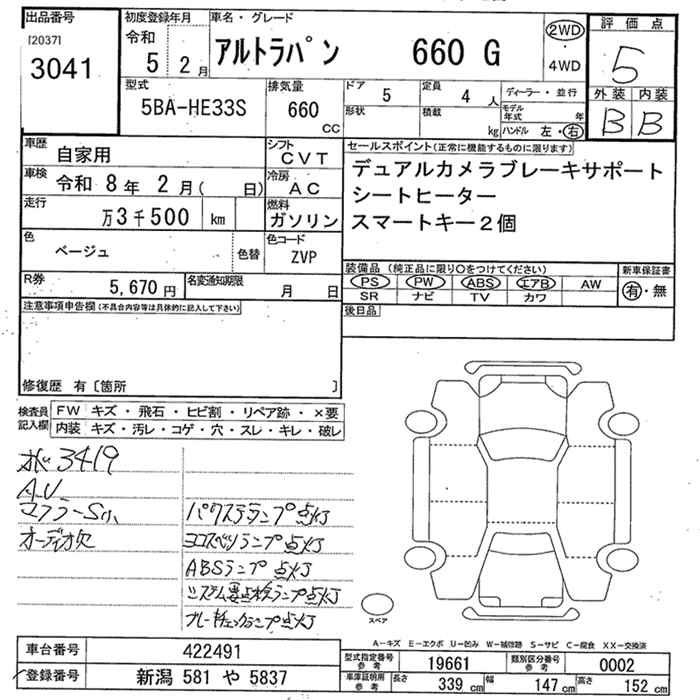 出品番号
[2037]
3041
初度登録年月
令和
5 2月
車名・グレード
アルトラパン 660 G
2WD
・
4WD
評価点
5
外装 内装
B B
型式
5BA-HE33S
排気量
660
cc
ドア 5
定員 4 人
形状
積載 kg
ディーラー・並行
モデル年式 年
ハンドル 左・右
車歴
自家用
シフト
CVT
車検 令和 8年 2月( 日)
冷房
AC
走行
万3千500 km
燃料
ガソリン
色
ベージュ
色替
色コード
ZVP
R券
5,670 円
名変通知期限
月 日
セールスポイント(正常に機能するものに限ります)
デュアルカメラブレーキサポート
シートヒーター
スマートキー2個
装備品(純正品に限り○をつけてください)
PS PW ABS エアB AW
SR ナビ TV カワ
新車保証書
有・無
後日品
注意事項申告欄(不具合内容等は具体的に記入して下さい)
修復歴 有〔箇所 〕
検査員
記入欄
FW キズ・飛石・ヒビ割・リペア跡・×要
内装 キズ・汚レ・コゲ・穴・スレ・キレ・破レ
3419
A.U.
マフラーS小
オーディオ欠
パワステランプ点灯
ヨコスベリランプ点灯
ABSランプ点灯
システム要点検ランプ点灯
ブレーキチェックランプ点灯
スペア
A-キズ E-エクボ U-凹み W-補修跡 S-サビ C-腐食 XX-交換済
車台番号 422491
登録番号 新潟 581 や 5837
型式指定番号
参考
19661
類別区分番号
参考
0002
車庫証明用
参考
長さ 339 cm 幅 147 cm 高さ 152 cm